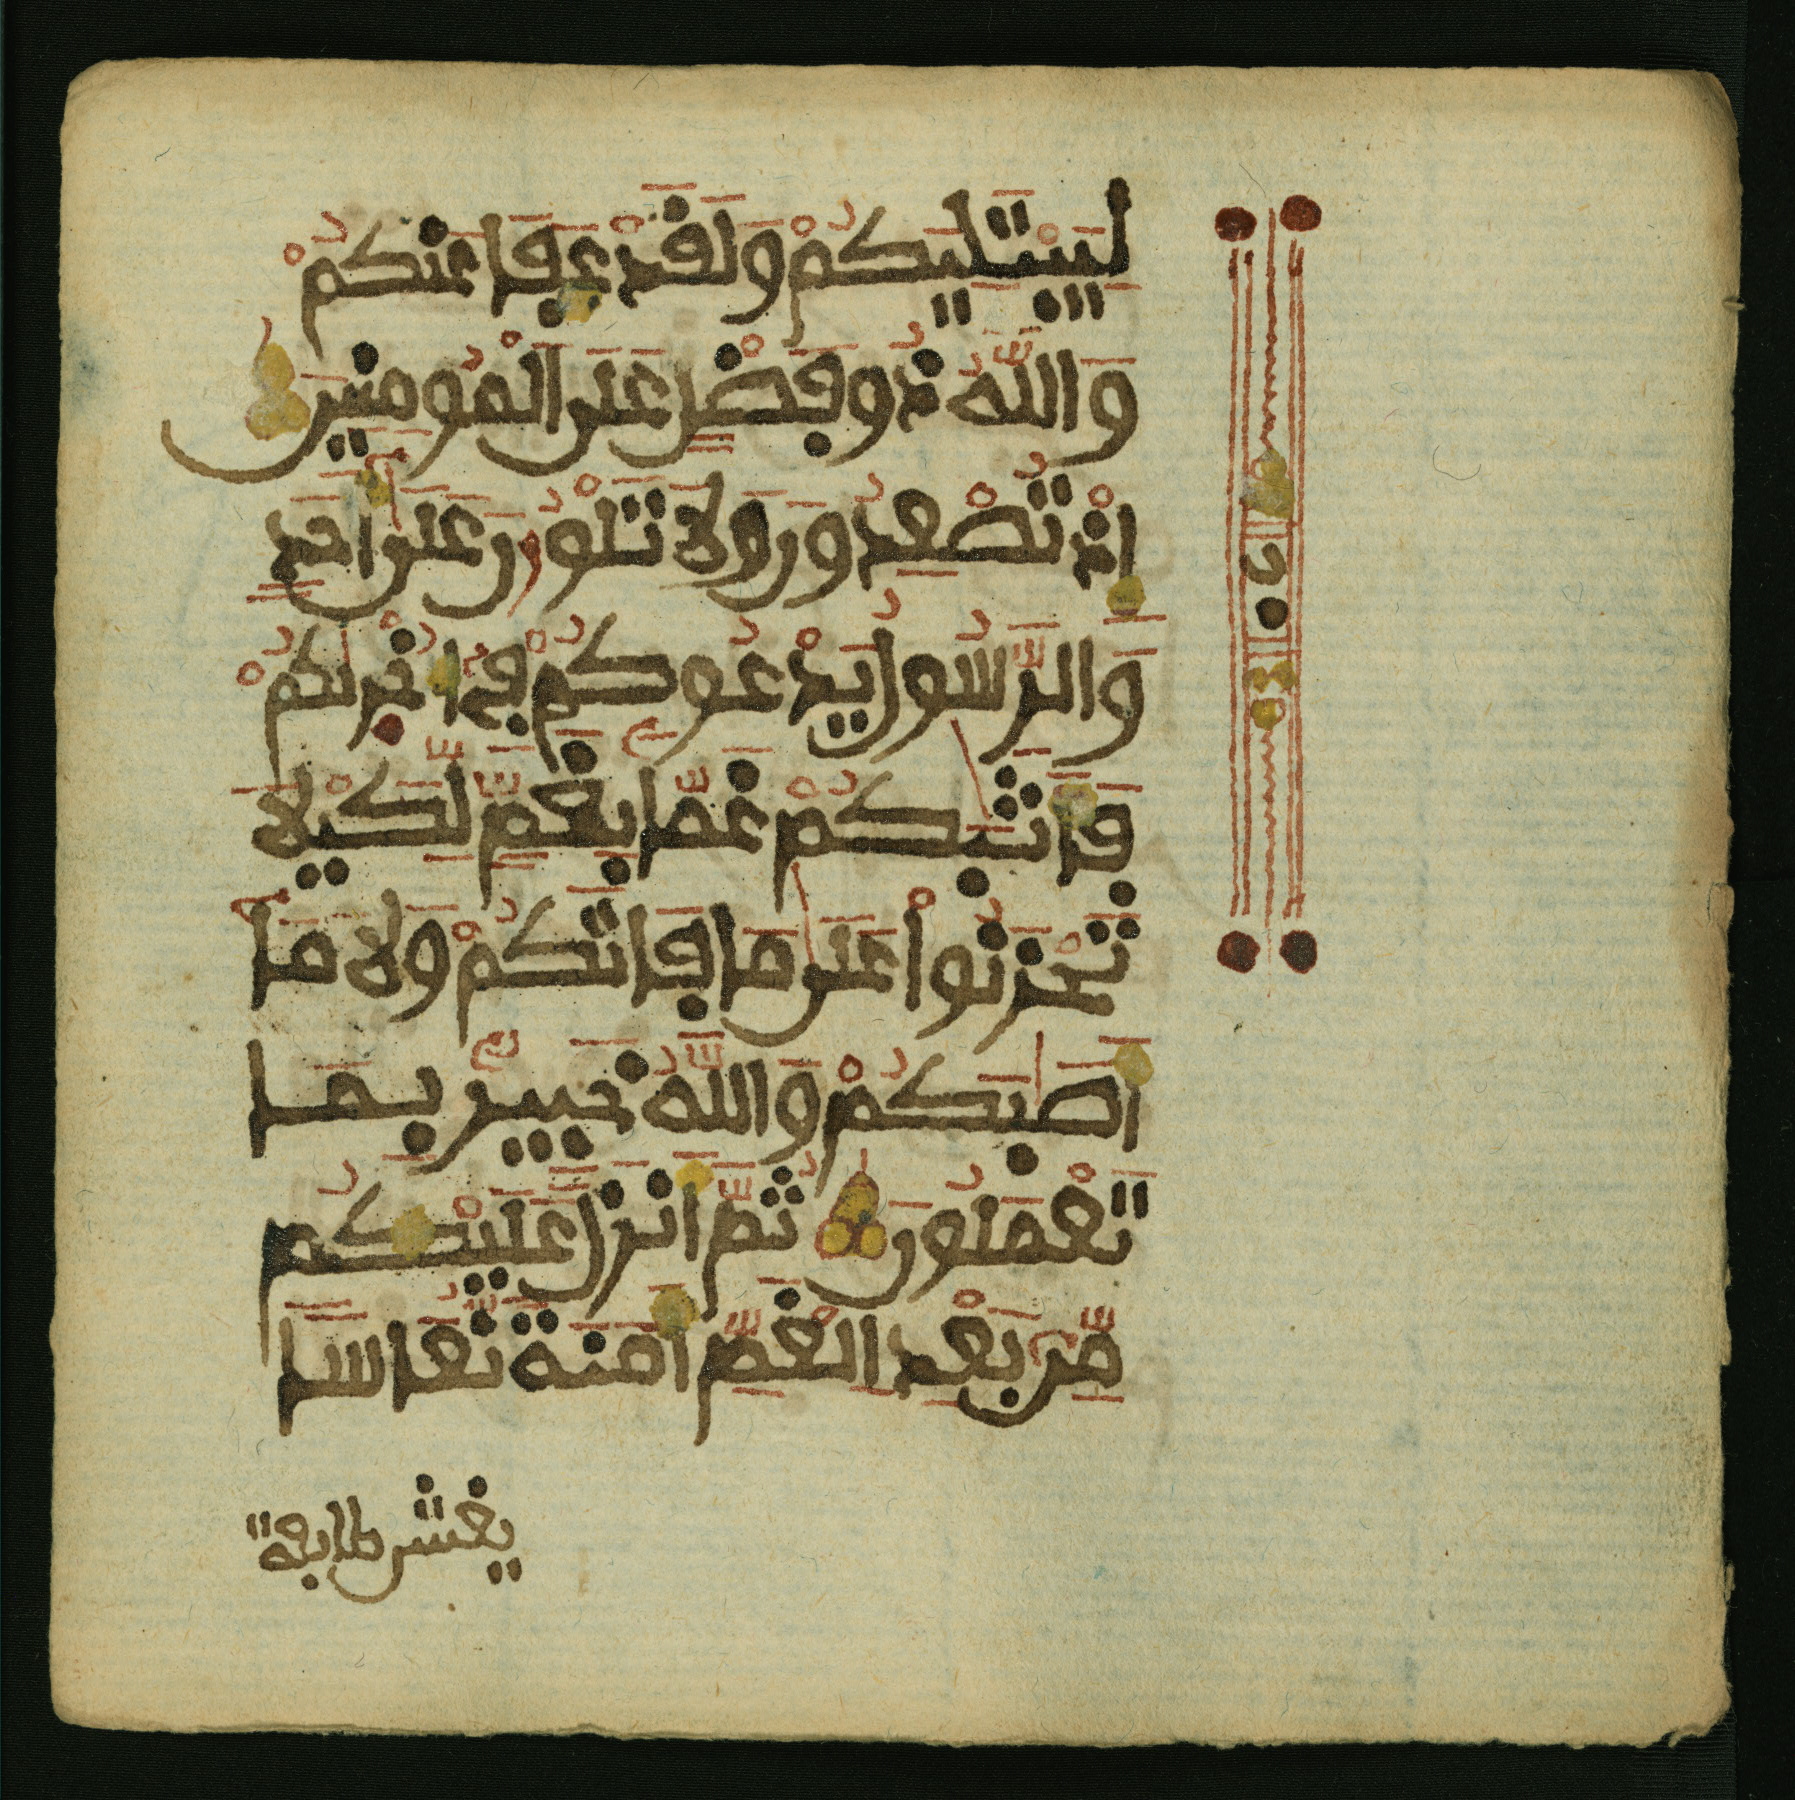 لِيَبْتَلِيَكُمْ وَلَقَدْ عَفَا عَنكُمْ
وَاللَّهُ ذُو فَضْلٍ عَلَى الْمُومِنِينَ
إِذْ تُصْعِدُونَ وَلَا تَلْوُۥنَ عَلَىٰ أَحَدٍ
وَالرَّسُولُ يَدْعُوكُمْ فِي أُخْرَىٰكُمْ
فَأَثَٰبَكُمْ غَمًّا بِغَمٍّ لِّكَيْلَا
تَحْزَنُوا عَلَىٰ مَا فَاتَكُمْ وَلَا مَا
أَصَٰبَكُمْ وَاللَّهُ خَبِيرٌ بِمَا
تَعْمَلُونَ ثُمَّ أَنزَلَ عَلَيْكُم
مِّن بَعْدِ الْغَمِّ أَمَنَةً نُّعَاسًا
يغشى طايفة